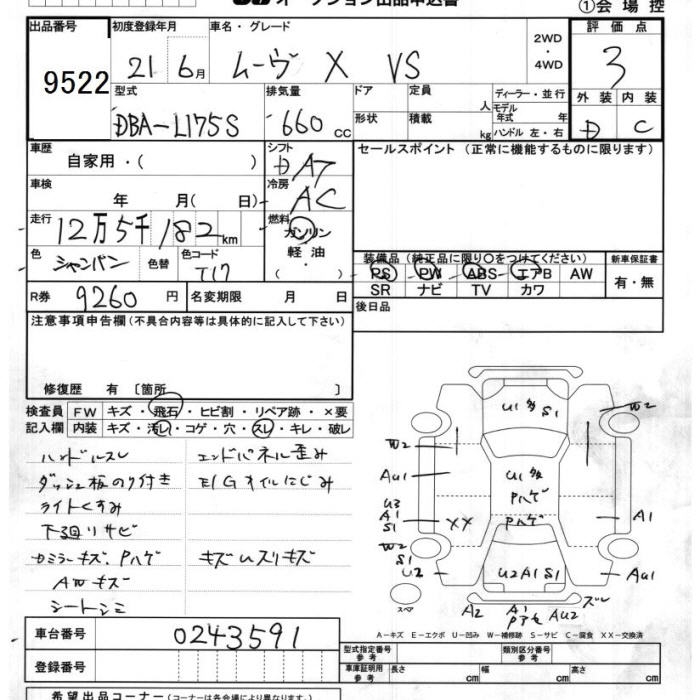 オークション出品申込書
①会場控
出品番号
9522
初度登録年月
21 6月
車名・グレード
ムーヴ X VS
2WD
・
4WD
評価点
3
型式
DBA-L175S
排気量
660 cc
ドア
形状
定員 人
積載 kg
ディーラー・並行
モデル年式 年
ハンドル 左・右
外装 内装
D C
車歴
自家用・( )
シフト
DAT
セールスポイント (正常に機能するものに限ります)
車検
年 月( 日)
冷房
AC
走行
12万5千182km
燃料
ガソリン
軽油・
( )
色
シャンパン
色替
色コード
T17
装備品(純正品に限り○をつけてください)
PS PW ABS エアB AW
SR ナビ TV カワ
新車保証書
有・無
R券 9260円
名変期限 月 日
後日品
注意事項申告欄(不具合内容等は具体的に記入して下さい)
修復歴 有 〔箇所 〕
検査員
記入欄
FW キズ・飛石・ヒビ割・リペア跡・×要
内装 キズ・汚レ・コゲ・穴・スレ・キレ・破レ
ハンドルスレ
エンドパネル歪み
ダッシュ板のり付き
E/Gオイルにじみ
ライトくすみ
下廻リサビ
カミラーキズ、Pハゲ
キズUスリキズ
AWキズ
シートシミ
U1多 S1
W2
W2
AU1
U1多
Pハゲ
Pハゲ
U3
A1
S1
XX
A1
W2
S1
U2
U2A1S1
AU1
スペア
A2
A1
AU2
スレ
A-キズ E-エクボ U-凹み W-補修跡 S-サビ C-腐食 XX-交換済
車台番号
0243591
登録番号
型式指定番号
参考
類別区分番号
参考
車庫証明用
参考
長さ cm
幅 cm
高さ cm
希望出品コーナー(コーナーは各会場により異なります。)